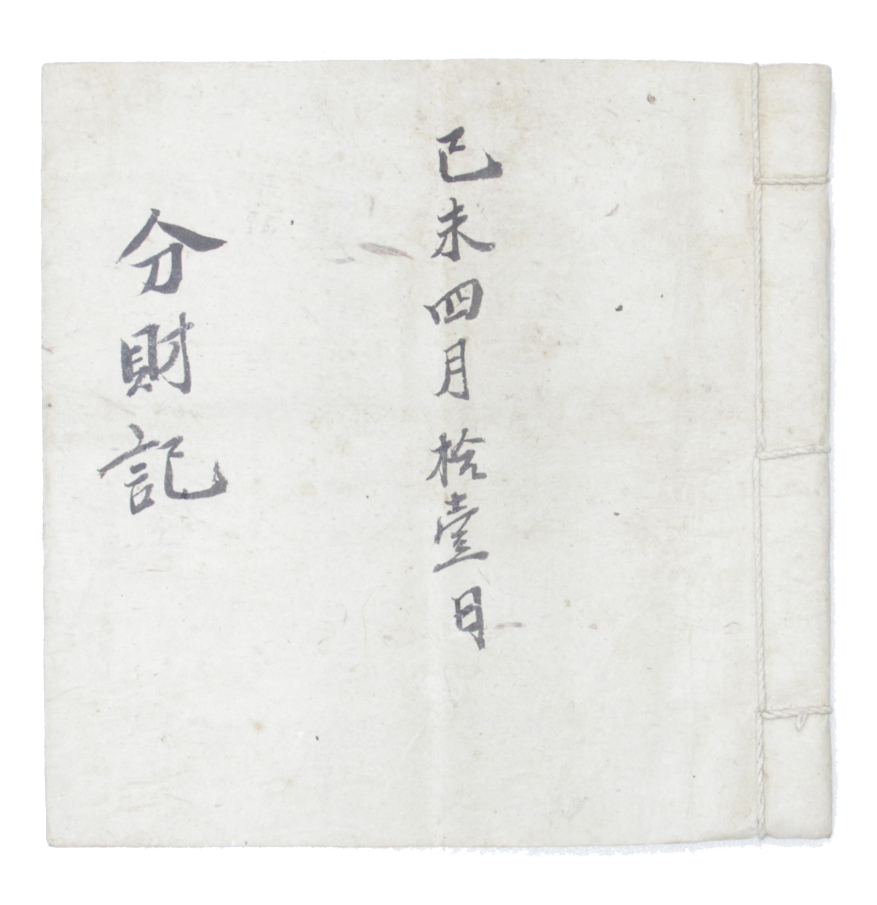 己未四月拾壹日
分財記